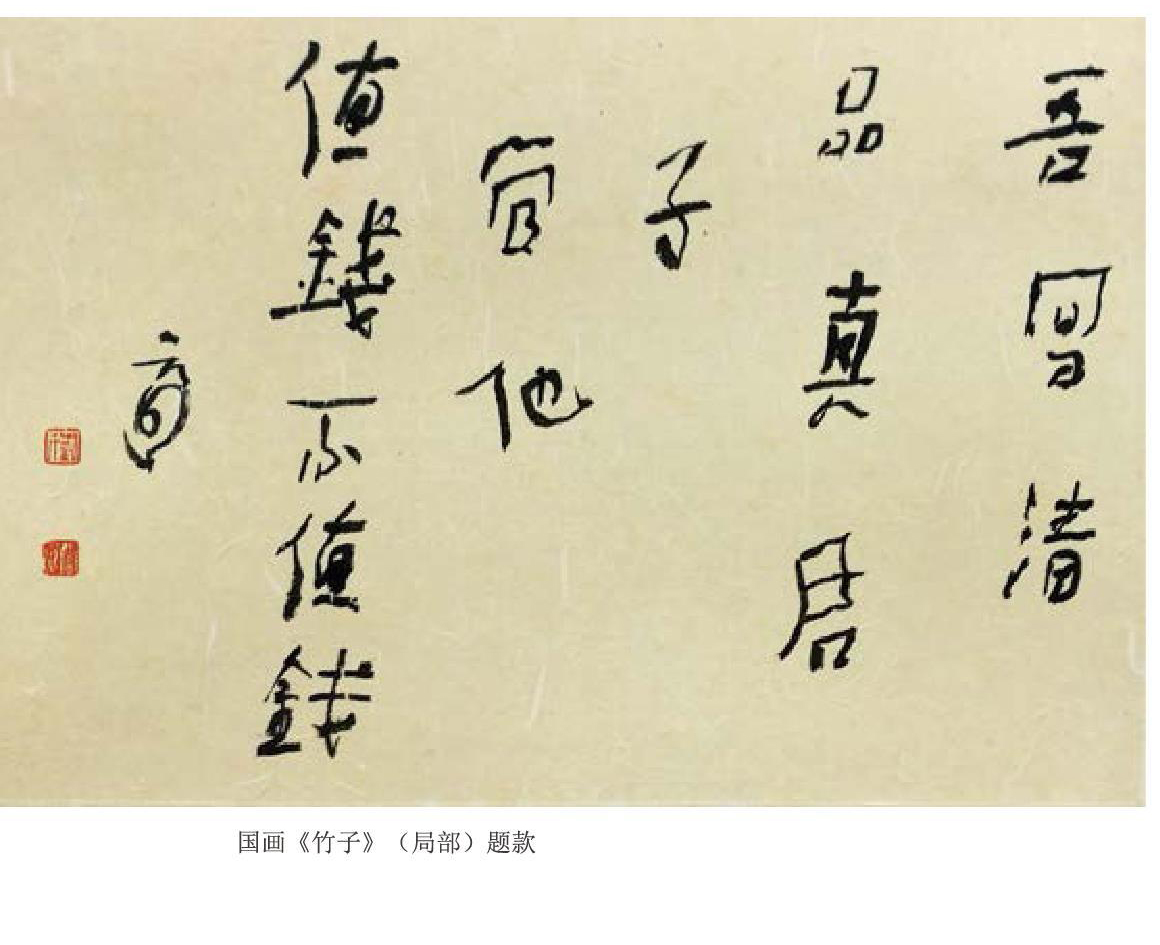 吾寫清
品真君
子
官他
值錢不值錢
国画《竹子》（局部）题款